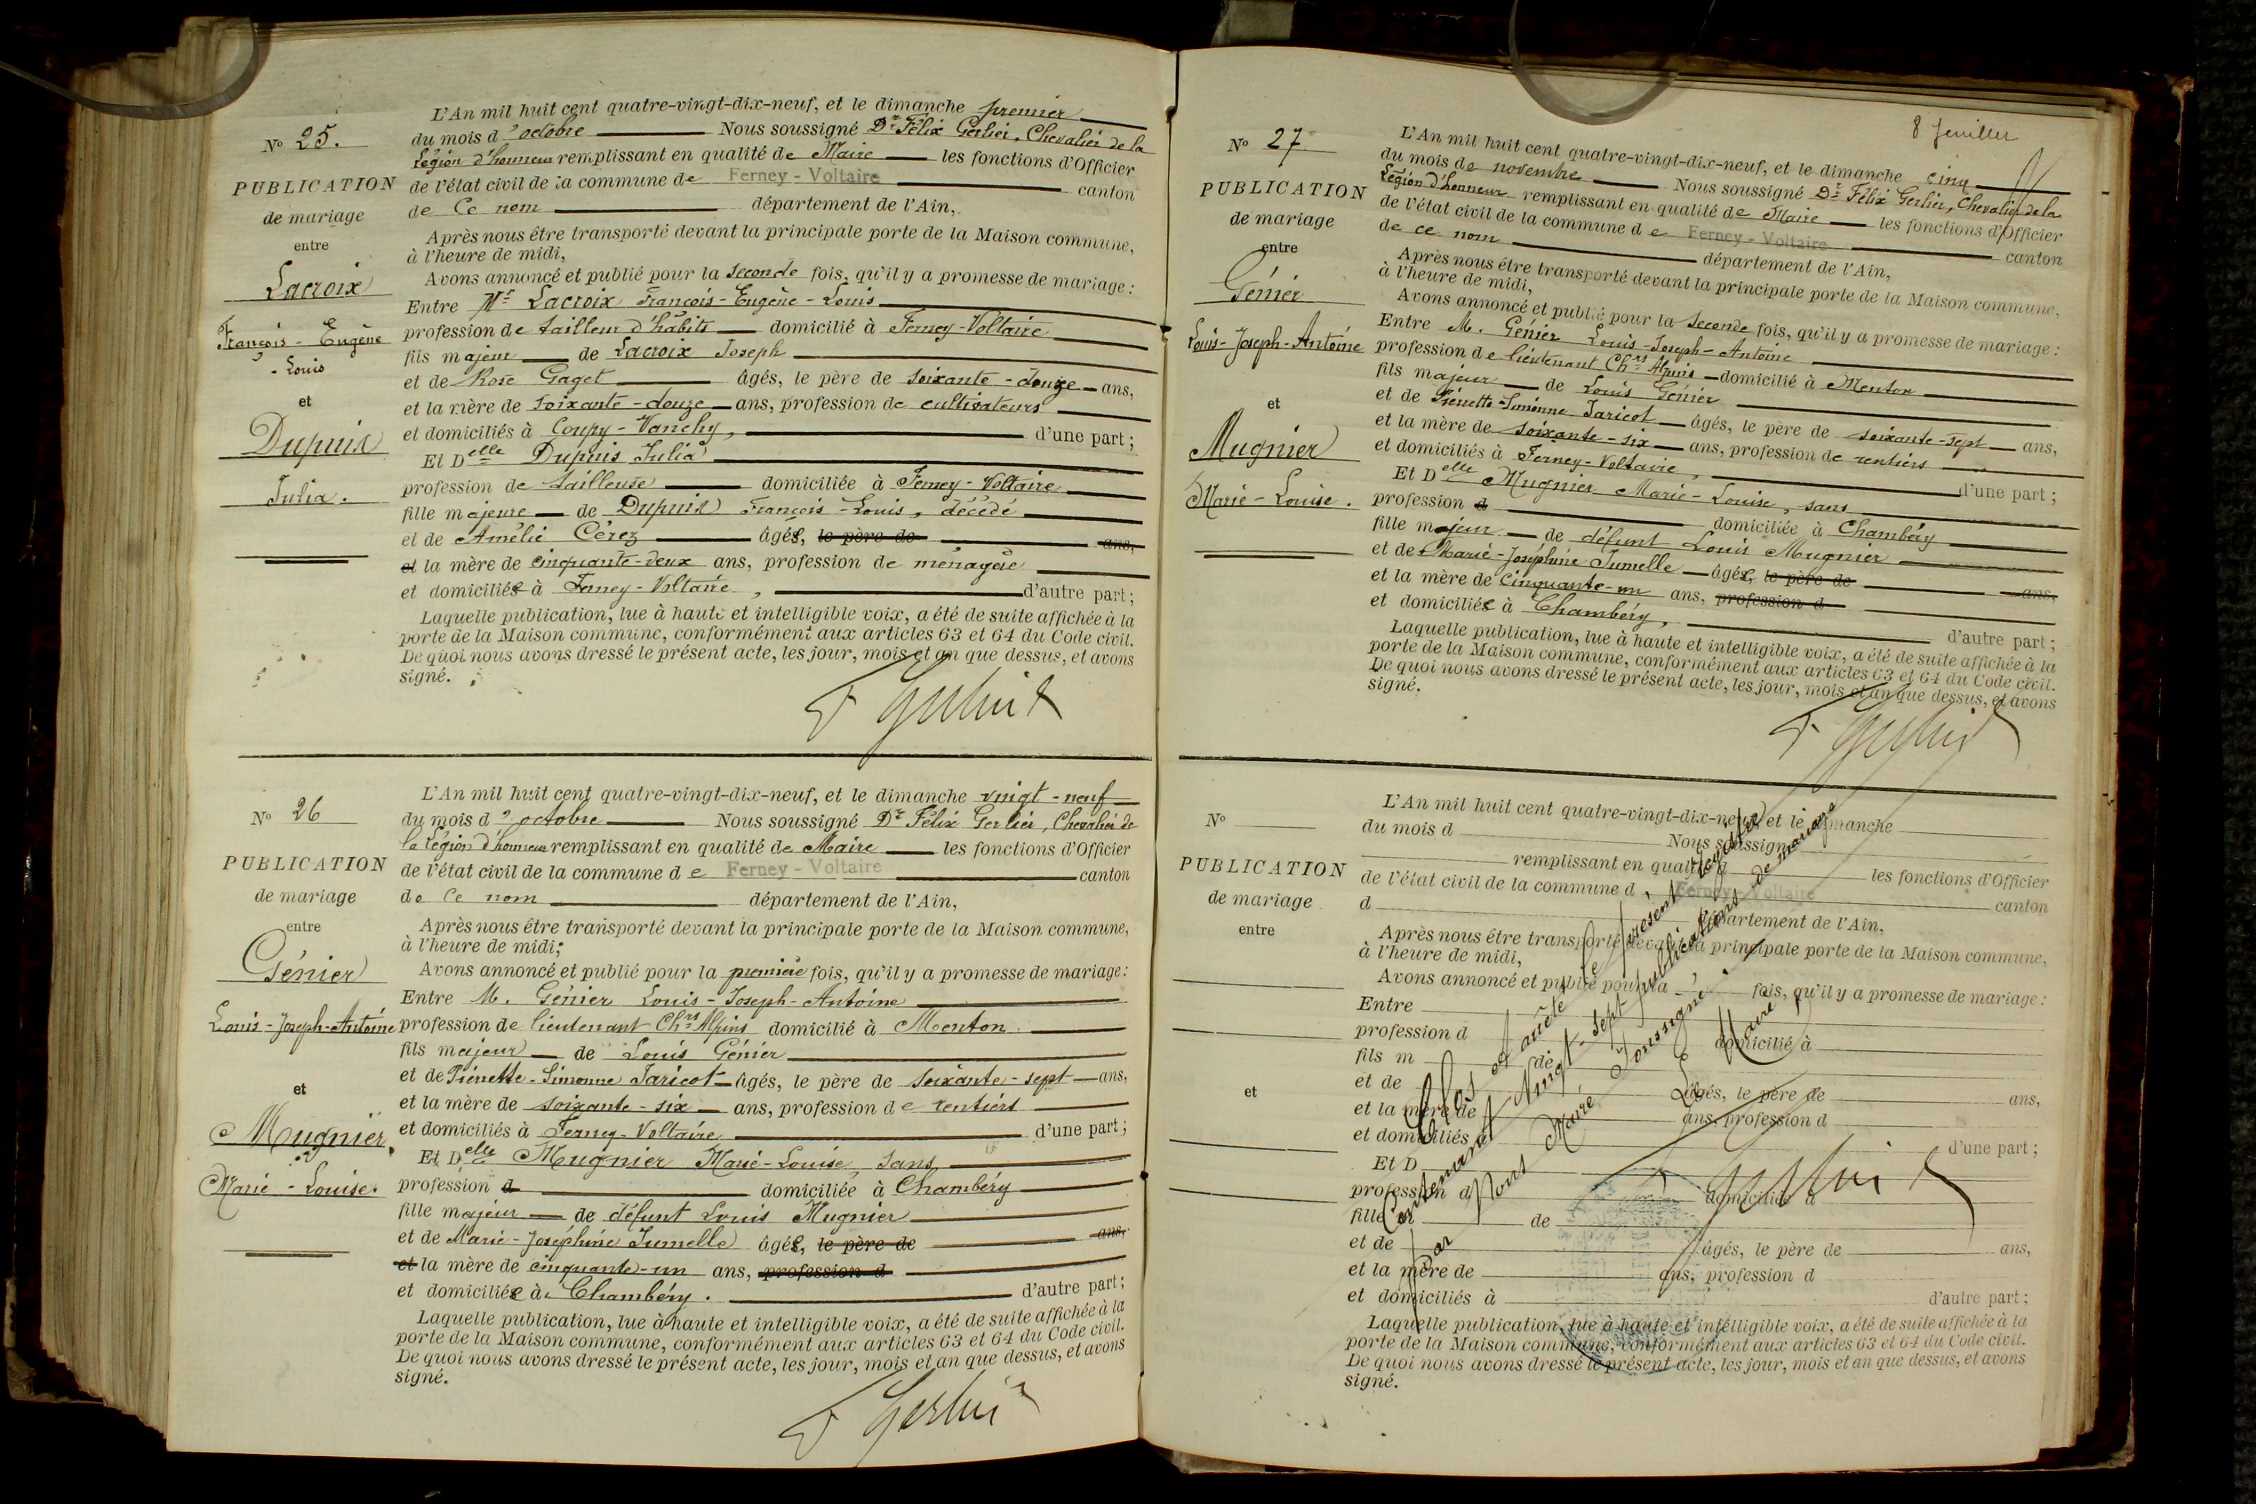 No 25.
PUBLICATION
de mariage
entre
Lacroix
François - Eugène
- Louis
et
Dupuis
Julia.
L'An mil huit cent quatre-vingt-dix-neuf, et le dimanche premier
du mois d'octobre Nous soussigné Dr Félix Gerlier, Chevalier de la
Légion d'honneur remplissant en qualité de Maire les fonctions d'Officier
de l'état civil de la commune de Ferney - Voltaire canton
de Ce nom département de l'Ain,
Après nous être transporté devant la principale porte de la Maison commune,
à l'heure de midi,
Avons annoncé et publié pour la seconde fois, qu'il y a promesse de mariage :
Entre Mr Lacroix François - Eugène - Louis
profession de tailleur d'habits domicilié à Ferney-Voltaire
fils majeur de Lacroix Joseph
et de Rose Gaget âgés, le père de soixante - douze ans,
et la mère de soixante - douze ans, profession de cultivateurs
et domiciliés à Coupy - Vanchy, d'une part ;
Et Delle Dupuis Julia
profession de tailleuse domiciliée à Ferney - Voltaire
fille majeure de Dupuis François - Louis, décédé
et de Amélie Cérez âgée, le père de ans,
et la mère de cinquante-deux ans, profession de ménagère
et domiciliée à Ferney - Voltaire, d'autre part ;
Laquelle publication, lue à haute et intelligible voix, a été de suite affichée à la
porte de la Maison commune, conformément aux articles 63 et 64 du Code civil.
De quoi nous avons dressé le présent acte, les jour, mois et an que dessus, et avons
signé.
F Gerlier
No 26
PUBLICATION
de mariage
entre
Génier
Louis - Joseph - Antoine
et
Mugnier
Marie - Louise.
L'An mil huit cent quatre-vingt-dix-neuf, et le dimanche vingt - neuf
du mois d'octobre Nous soussigné Dr Félix Gerlier, Chevalier de
la Légion d'honneur remplissant en qualité de Maire les fonctions d'Officier
de l'état civil de la commune de Ferney - Voltaire canton
de Ce nom département de l'Ain,
Après nous être transporté devant la principale porte de la Maison commune,
à l'heure de midi;
Avons annoncé et publié pour la première fois, qu'il y a promesse de mariage :
Entre M. Génier Louis - Joseph - Antoine
profession de lieutenant Chrs Alpins domicilié à Menton
fils majeur de Louis Génier
et de Pierrette - Simonne Jaricot âgés, le père de soixante - sept ans,
et la mère de soixante - six ans, profession de rentiers
et domiciliés à Ferney - Voltaire d'une part ;
Et Delle Mugnier Marie - Louise, sans
profession d domiciliée à Chambéry
fille majeur de défunt Louis Mugnier
et de Marie - Joséphine Jumelle âgée, le père de ans,
et la mère de cinquante-un ans, profession d
et domiciliée à Chambéry. d'autre part ;
Laquelle publication, lue à haute et intelligible voix, a été de suite affichée à la
porte de la Maison commune, conformément aux articles 63 et 64 du Code civil.
De quoi nous avons dressé le présent acte, les jour, mois et an que dessus, et avons
signé.
F Gerlier
8 feuillets
No 27
PUBLICATION
de mariage
entre
Génier
Louis - Joseph - Antoine
et
Mugnier
Marie - Louise.
L'An mil huit cent quatre-vingt-dix-neuf, et le dimanche cinq
du mois de novembre Nous soussigné Dr Félix Gerlier, Chevalier de la
Légion d'honneur remplissant en qualité de Maire les fonctions d'Officier
de l'état civil de la commune de Ferney - Voltaire canton
de ce nom département de l'Ain,
Après nous être transporté devant la principale porte de la Maison commune,
à l'heure de midi,
Avons annoncé et publié pour la seconde fois, qu'il y a promesse de mariage :
Entre M. Génier Louis - Joseph - Antoine
profession de lieutenant Chrs Alpins domicilié à Menton
fils majeur de Louis Génier
et de Pierrette - Simonne Jaricot âgés, le père de soixante - sept ans,
et la mère de soixante - six ans, profession de rentiers
et domiciliés à Ferney - Voltaire, d'une part ;
Et Delle Mugnier Marie - Louise, sans
profession d domiciliée à Chambéry
fille majeur de défunt Louis Mugnier
et de Marie - Joséphine Jumelle âgée, le père de ans,
et la mère de cinquante-un ans, profession d
et domiciliée à Chambéry, d'autre part ;
Laquelle publication, lue à haute et intelligible voix, a été de suite affichée à la
porte de la Maison commune, conformément aux articles 63 et 64 du Code civil.
De quoi nous avons dressé le présent acte, les jour, mois et an que dessus, et avons
signé.
F Gerlier
No
PUBLICATION
de mariage
entre
et
L'An mil huit cent quatre-vingt-dix-neuf, et le dimanche
du mois d Nous soussigné
remplissant en qualité d les fonctions d'Officier
de l'état civil de la commune d Ferney - Voltaire canton
d département de l'Ain,
Après nous être transporté devant la principale porte de la Maison commune,
à l'heure de midi,
Avons annoncé et publié pour la fois, qu'il y a promesse de mariage :
Entre
profession d domicilié à
fils m de
et de âgés, le père de ans,
et la mère de ans, profession d
et domiciliés à d'une part ;
Et D
profession d domiciliée à
fille m de
et de âgés, le père de ans,
et la mère de ans, profession d
et domiciliés à d'autre part ;
Laquelle publication, lue à haute et intelligible voix, a été de suite affichée à la
porte de la Maison commune, conformément aux articles 63 et 64 du Code civil.
De quoi nous avons dressé le présent acte, les jour, mois et an que dessus, et avons
signé.
Clos et arrêté le présent registre
Contenant Vingt - sept publications de mariage
par Nous Maire soussigné.
Le Maire,
F Gerlier